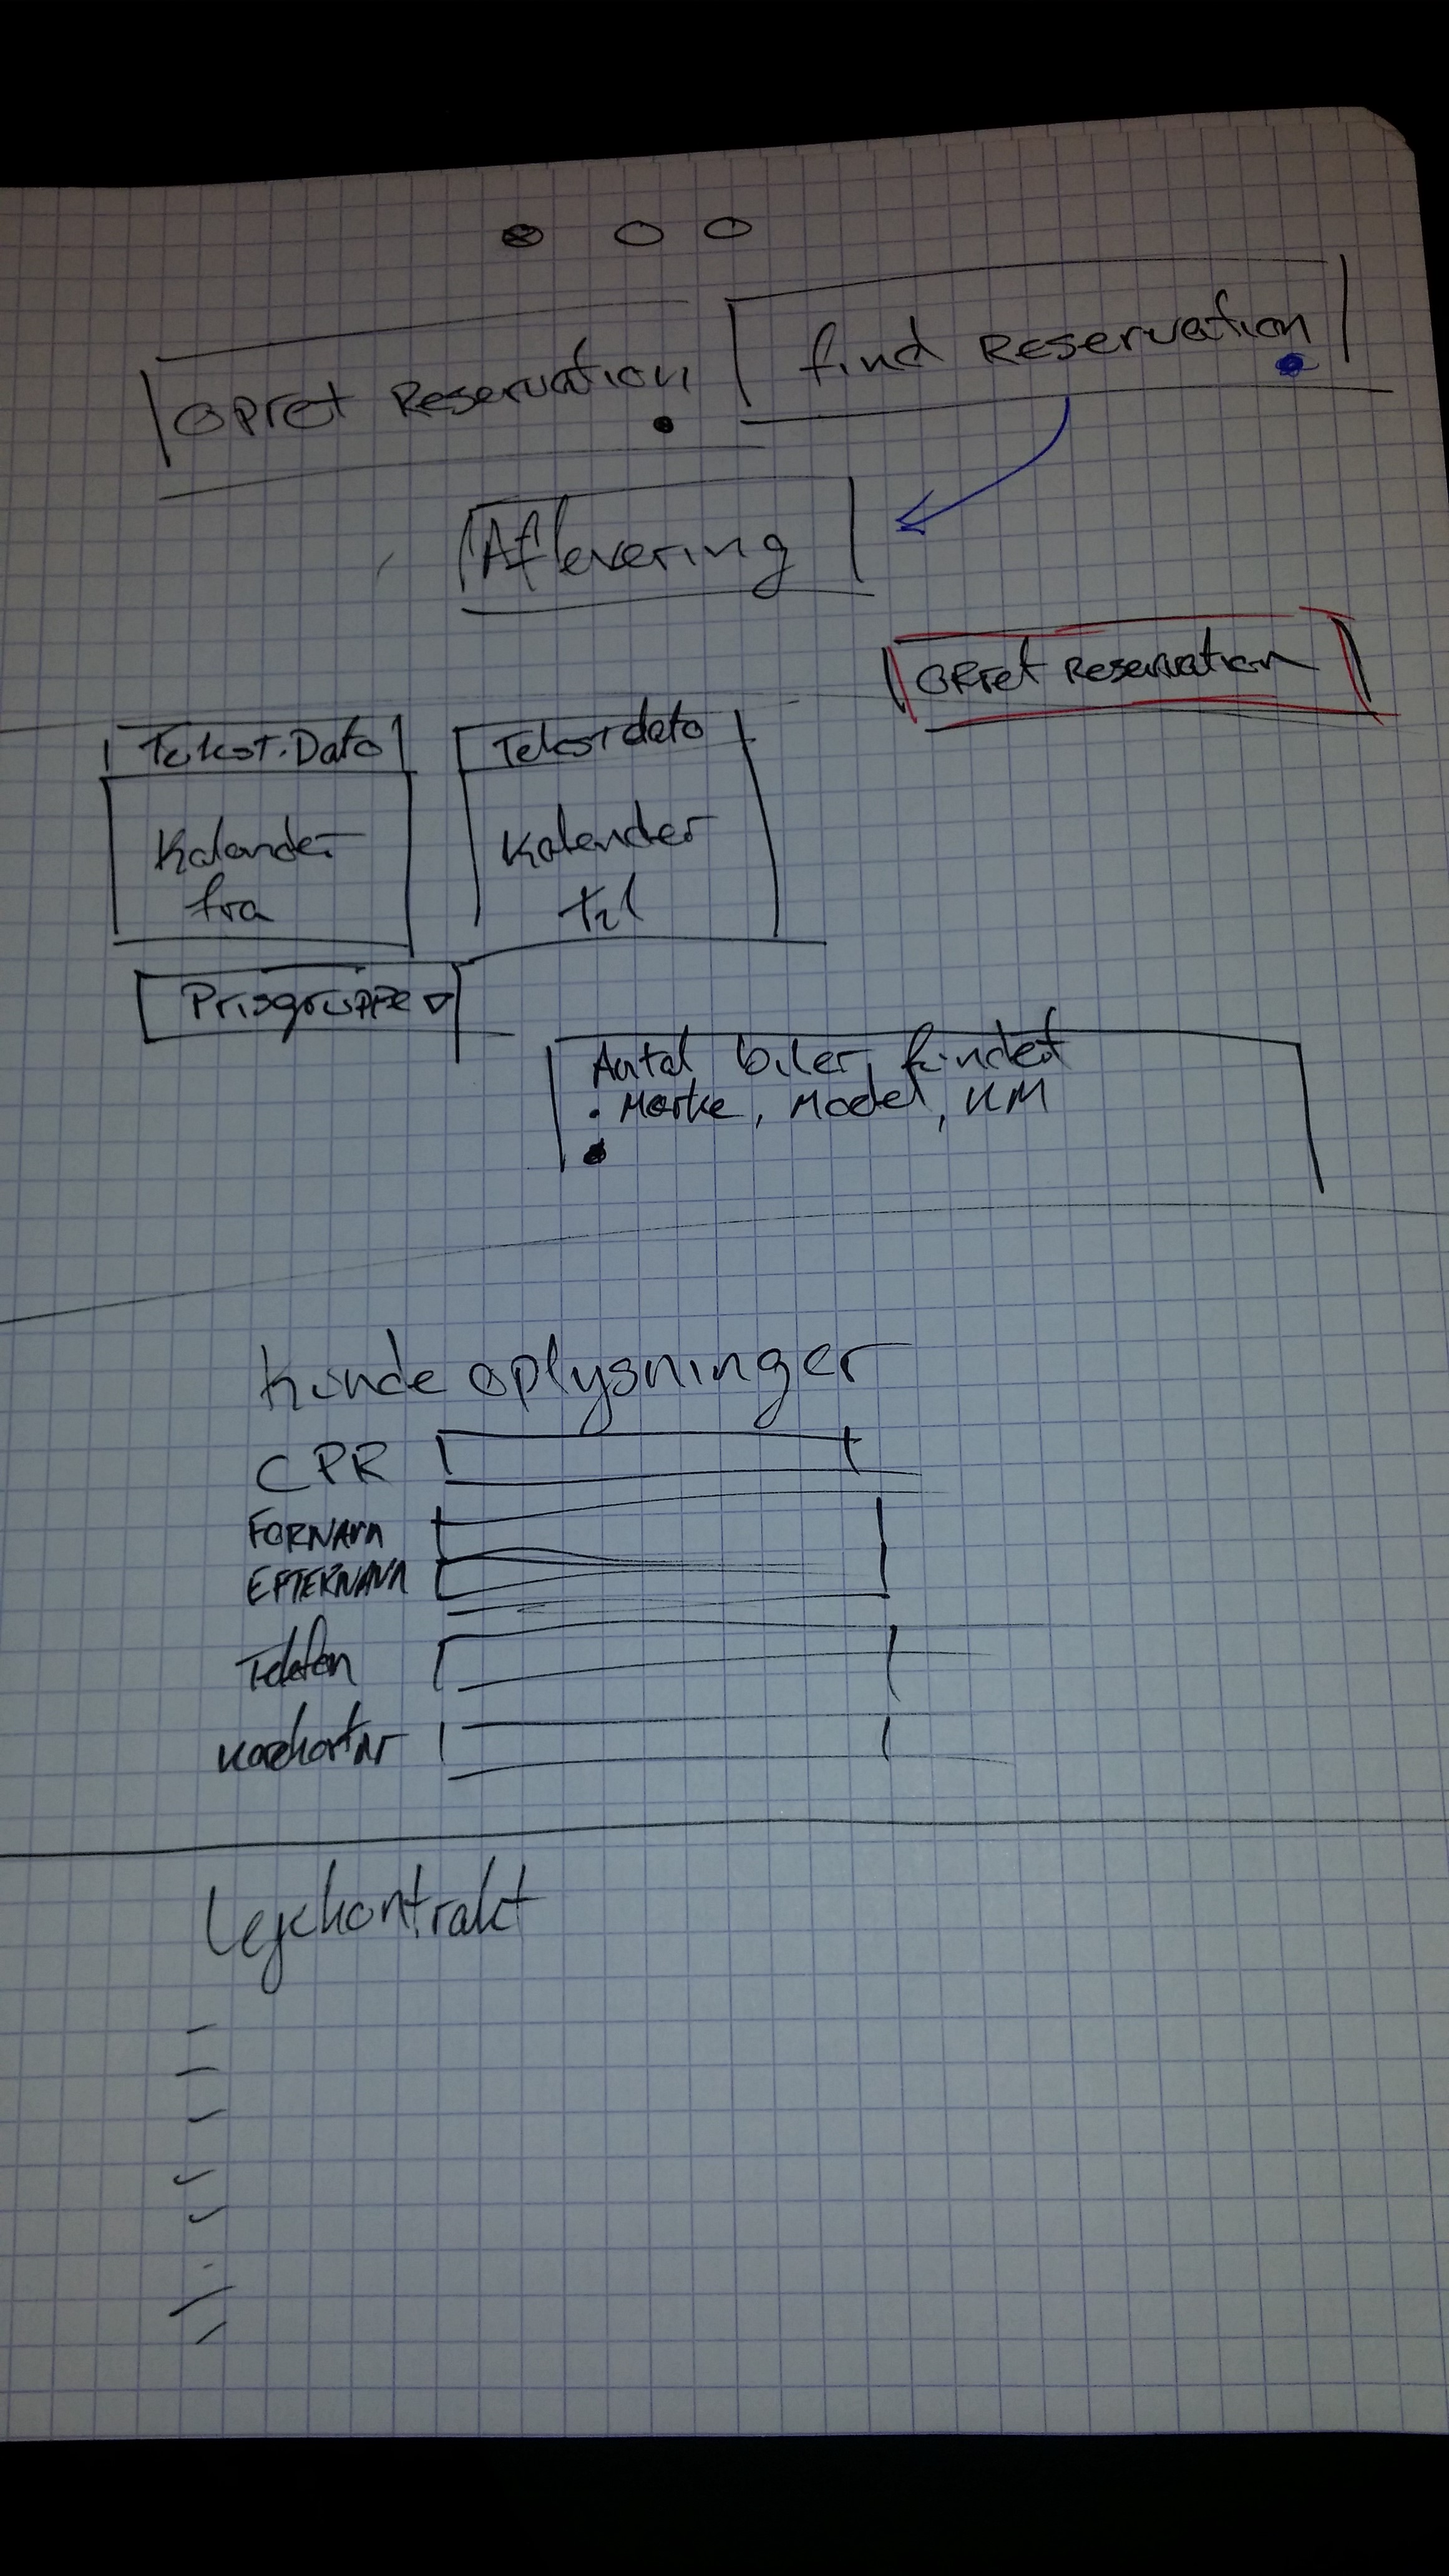 Opret Reservation
find Reservation
Aflevering
Opret Reservation
Tekst.Dato
Tekstdato
Kalender
fra
Kalender
til
Prisgruppe
Antal biler findet
. Mærke, Model, KM
Kunde oplysninger
CPR
FORNAVN
EFTERNAVN
Telefon
Kørekortnr
Lejekontrakt